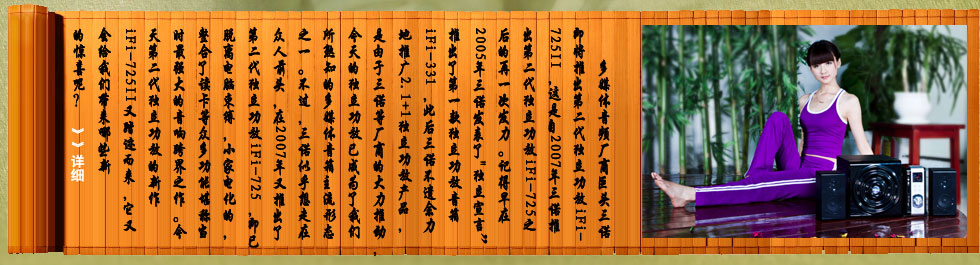 多媒体音频厂商巨头三诺
即将推出第二代独立功放iFi-
725II ,这是自2007年三诺推
出第二代独立功放iFi-725之
后的再一次发力。记得早在
2005年三诺发表了"独立宣言",
推出了第一款独立功放音箱
iFi-331 ,此后三诺不遗余力
地推广2.1+1独立功放产品,
是由于三诺等厂商的大力推动,
今天的独立功放已成为了我们
所能知的多媒体音箱主流形态
之一。不过,三诺似乎想走在
众人前头,在2007年又推出了
第二代独立功放iFi-725 ,即已
脱离电脑束缚,小家电化的,
整合了读卡等众多功能堪称当
时最强大的音响跨界之作。今
天第二代独立功放的新作
iFi-725II又踏速而来,它又
会给我们带来哪些新
的惊喜呢?
》》详细